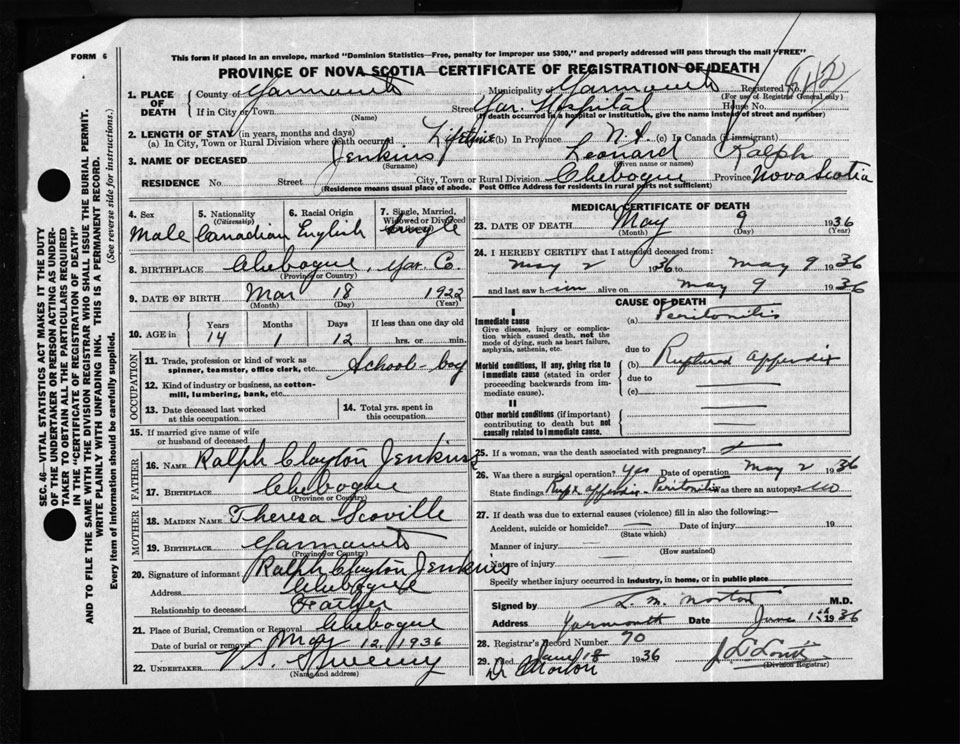 FORM 6
This form if placed in an envelope, marked "Dominion Statistics—Free, penalty for improper use $300," and properly addressed will pass through the mail "FREE"
PROVINCE OF NOVA SCOTIA—CERTIFICATE OF REGISTRATION OF DEATH
1. PLACE OF DEATH
County of Yarmouth Municipality Yarmouth Registered No.
(For use of Registrar General only)
If in City or Town Street Yar. Hospital House No.
(Name) (If death occurred in a hospital or institution, give the name instead of street and number)
2. LENGTH OF STAY (in years, months and days)
(a) In City, Town or Rural Division where death occurred Lifetime (b) In Province N.S. (c) In Canada (if immigrant)
3. NAME OF DECEASED Jenkins Leonard Ralph
(Surname) (Given name or names)
RESIDENCE No. Street City, Town or Rural Division Chebogue Province Nova Scotia
(Residence means usual place of abode. Post Office Address for residents in rural parts not sufficient)
4. Sex Male
5. Nationality (Citizenship) Canadian
6. Racial Origin English
7. Single, Married, Widowed or Divorced Single
8. BIRTHPLACE Chebogue, Yar. Co.
(Province or Country)
9. DATE OF BIRTH Mar 18 1922
(Month) (Day) (Year)
10. AGE in Years Months Days If less than one day old
14 1 12 hrs. or min.
OCCUPATION
11. Trade, profession or kind of work as spinner, teamster, office clerk, etc. School-boy
12. Kind of industry or business, as cotton-mill, lumbering, bank, etc.
13. Date deceased last worked at this occupation
14. Total yrs. spent in this occupation
15. If married give name of wife or husband of deceased
FATHER
16. NAME Ralph Clayton Jenkins
17. BIRTHPLACE Chebogue
(Province or Country)
MOTHER
18. MAIDEN NAME Theresa Scoville
19. BIRTHPLACE Yarmouth
(Province or Country)
20. Signature of informant Ralph Clayton Jenkins
Address Chebogue
Relationship to deceased Father
21. Place of Burial, Cremation or Removal Chebogue
Date of burial or removal May 12, 1936
22. UNDERTAKER V.S. Sweeny
(Name and address)
MEDICAL CERTIFICATE OF DEATH
23. DATE OF DEATH May 9 1936
(Month) (Day) (Year)
24. I HEREBY CERTIFY that I attended deceased from:
May 2 1936 to May 9 1936
and last saw him alive on May 9 1936
CAUSE OF DEATH
I
Immediate cause
Give disease, injury or complication which caused death, not the mode of dying, such as heart failure, asphyxia, asthenia, etc.
(a) Peritonitis
due to
Morbid conditions, if any, giving rise to immediate cause (stated in order proceeding backwards from immediate cause).
(b) Ruptured appendix
due to
(c)
II
Other morbid conditions (if important) contributing to death but not causally related to immediate cause.
25. If a woman, was the death associated with pregnancy?
26. Was there a surgical operation? Yes Date of operation May 2 1936
State findings Rupt. appendix - Peritonitis Was there an autopsy? No
27. If death was due to external causes (violence) fill in also the following:—
Accident, suicide or homicide? Date of injury 19
(State which)
Manner of injury
(How sustained)
Nature of injury
Specify whether injury occurred in industry, in home, or in public place
Signed by L. M. Morton M.D.
Address Yarmouth Date June 1st 1936
28. Registrar's Record Number 90
29. Filed 1936
(Division Registrar)
Dr Morton
SEC. 46—VITAL STATISTICS ACT MAKES IT THE DUTY
OF THE UNDERTAKER OR PERSON ACTING AS UNDER-
TAKER TO OBTAIN ALL THE PARTICULARS REQUIRED
IN THE "CERTIFICATE OF REGISTRATION OF DEATH"
AND TO FILE THE SAME WITH THE DIVISION REGISTRAR WHO SHALL ISSUE THE BURIAL PERMIT.
WRITE PLAINLY WITH UNFADING INK. THIS IS A PERMANENT RECORD.
Every item of Information should be carefully supplied. (See reverse side for instructions.)